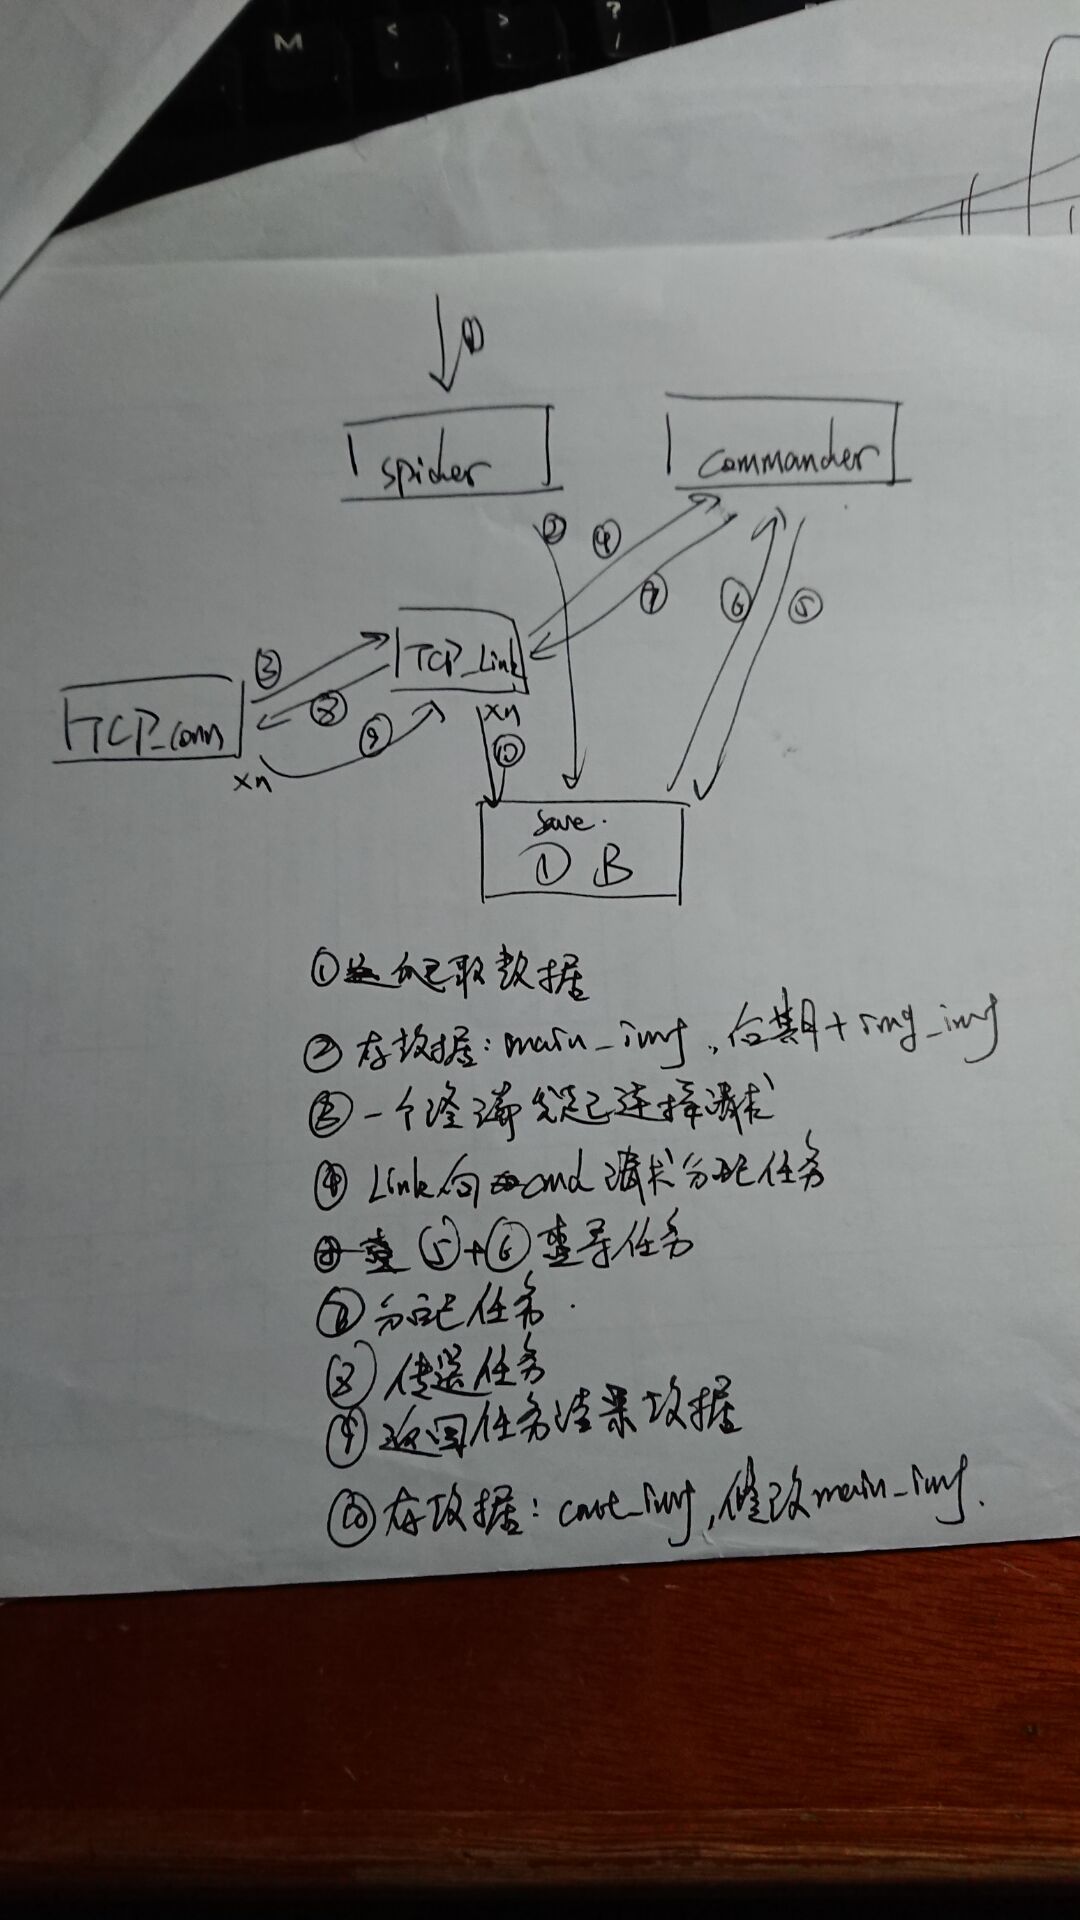 M
<
,
>
.
?
/
①
spider
commander
②
④
⑦
⑥
⑤
TCP_Link
③
⑧
TCP_conn
×n
⑨
×n
⑩
Save.
DB
①爬取数据
②存数据:main_inf,后期+img_inf
③一个终端发起连接请求
④Link向cmd请求分配任务
⑤+⑥查寻任务
⑦分配任务.
⑧传送任务
⑨返回任务结果数据
⑩存数据:cont_inf,修改main_inf.